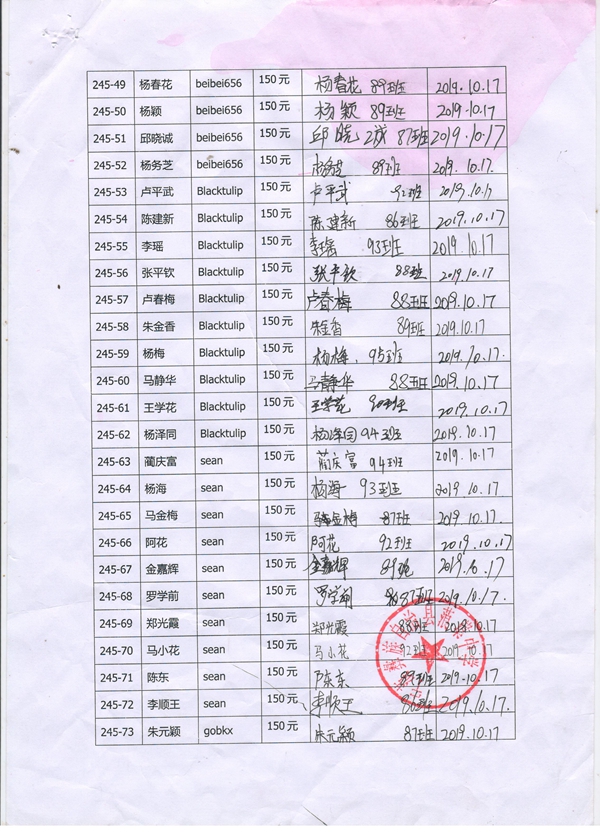 245-49 杨春花 beibei656 150元 杨春花 89班 2019.10.17
245-50 杨颖 beibei656 150元 杨颖 89班 2019.10.17
245-51 邱晓诚 beibei656 150元 邱晓诚 87班 2019.10.17
245-52 杨务芝 beibei656 150元 杨务芝 89班 2019.10.17.
245-53 卢平武 Blacktulip 150元 卢平武 92班 2019.10.17
245-54 陈建新 Blacktulip 150元 陈建新 86班 2019.10.17
245-55 李瑶 Blacktulip 150元 李瑶 93班 2019.10.17
245-56 张平钦 Blacktulip 150元 张平钦 88班 2019.10.17
245-57 卢春梅 Blacktulip 150元 卢春梅 88班 2019.10.17
245-58 朱金香 Blacktulip 150元 朱金香 89班 2019.10.17
245-59 杨梅 Blacktulip 150元 杨梅. 95班 2019.10.17.
245-60 马静华 Blacktulip 150元 马静华 88班 2019.10.17
245-61 王学花 Blacktulip 150元 王学花 90班 2019.10.17
245-62 杨泽同 Blacktulip 150元 杨泽同 94班 2019.10.17.
245-63 蔺庆富 sean 150元 蔺庆富 94班 2019.10.17
245-64 杨海 sean 150元 杨海 93班 2019.10.17
245-65 马金梅 sean 150元 马金梅 87班 2019.10.17.
245-66 阿花 sean 150元 阿花 92班 2019.10.17
245-67 金嘉辉 sean 150元 金嘉辉 2019.10.17
245-68 罗学前 sean 150元 罗学前 87班 2019.10.17
245-69 郑光霞 sean 150元 郑光霞 88班 2019.10.17
245-70 马小花 sean 150元 马小花 92班 2019.10.17
245-71 陈东 sean 150元 陈东 89班 2019.10.17
245-72 李顺王 sean 150元 李顺王 86班 2019.10.17.
245-73 朱元颖 gobkx 150元 朱元颖 87班 2019.10.17
族自治县